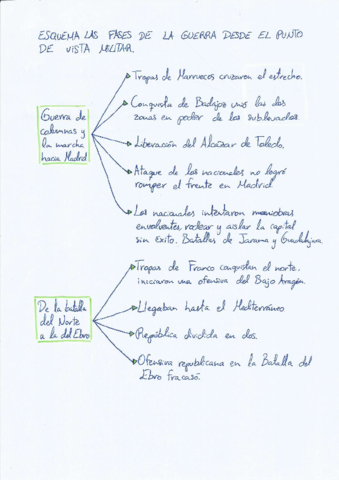 ESQUEMA LAS FASES DE LA GUERRA DESDE EL PUNTO
DE VISTA MILITAR.
Guerra de
columnas y
la marcha
hacia Madrid
Tropas de Marruecos cruzaron el estrecho.
Conquista de Badajoz unió las dos
zonas en poder de los sublevados
Liberación del Alcázar de Toledo.
Ataque de los nacionales no logró
romper el frente en Madrid
Los nacionales intentaron maniobras
envolventes, rodear y aislar la capital
sin exito. Batalles de Jarama y Guadalajara.
De la batalla
del Norte
a la del Ebro
Tropas de Franco conquistan el norte.
iniciaron una ofensiva del Bajo Aragón.
Llegaban hasta el Mediterráneo
República dividida en dos.
Ofensiva republicana en la Batalla del
Ebro fracasó.